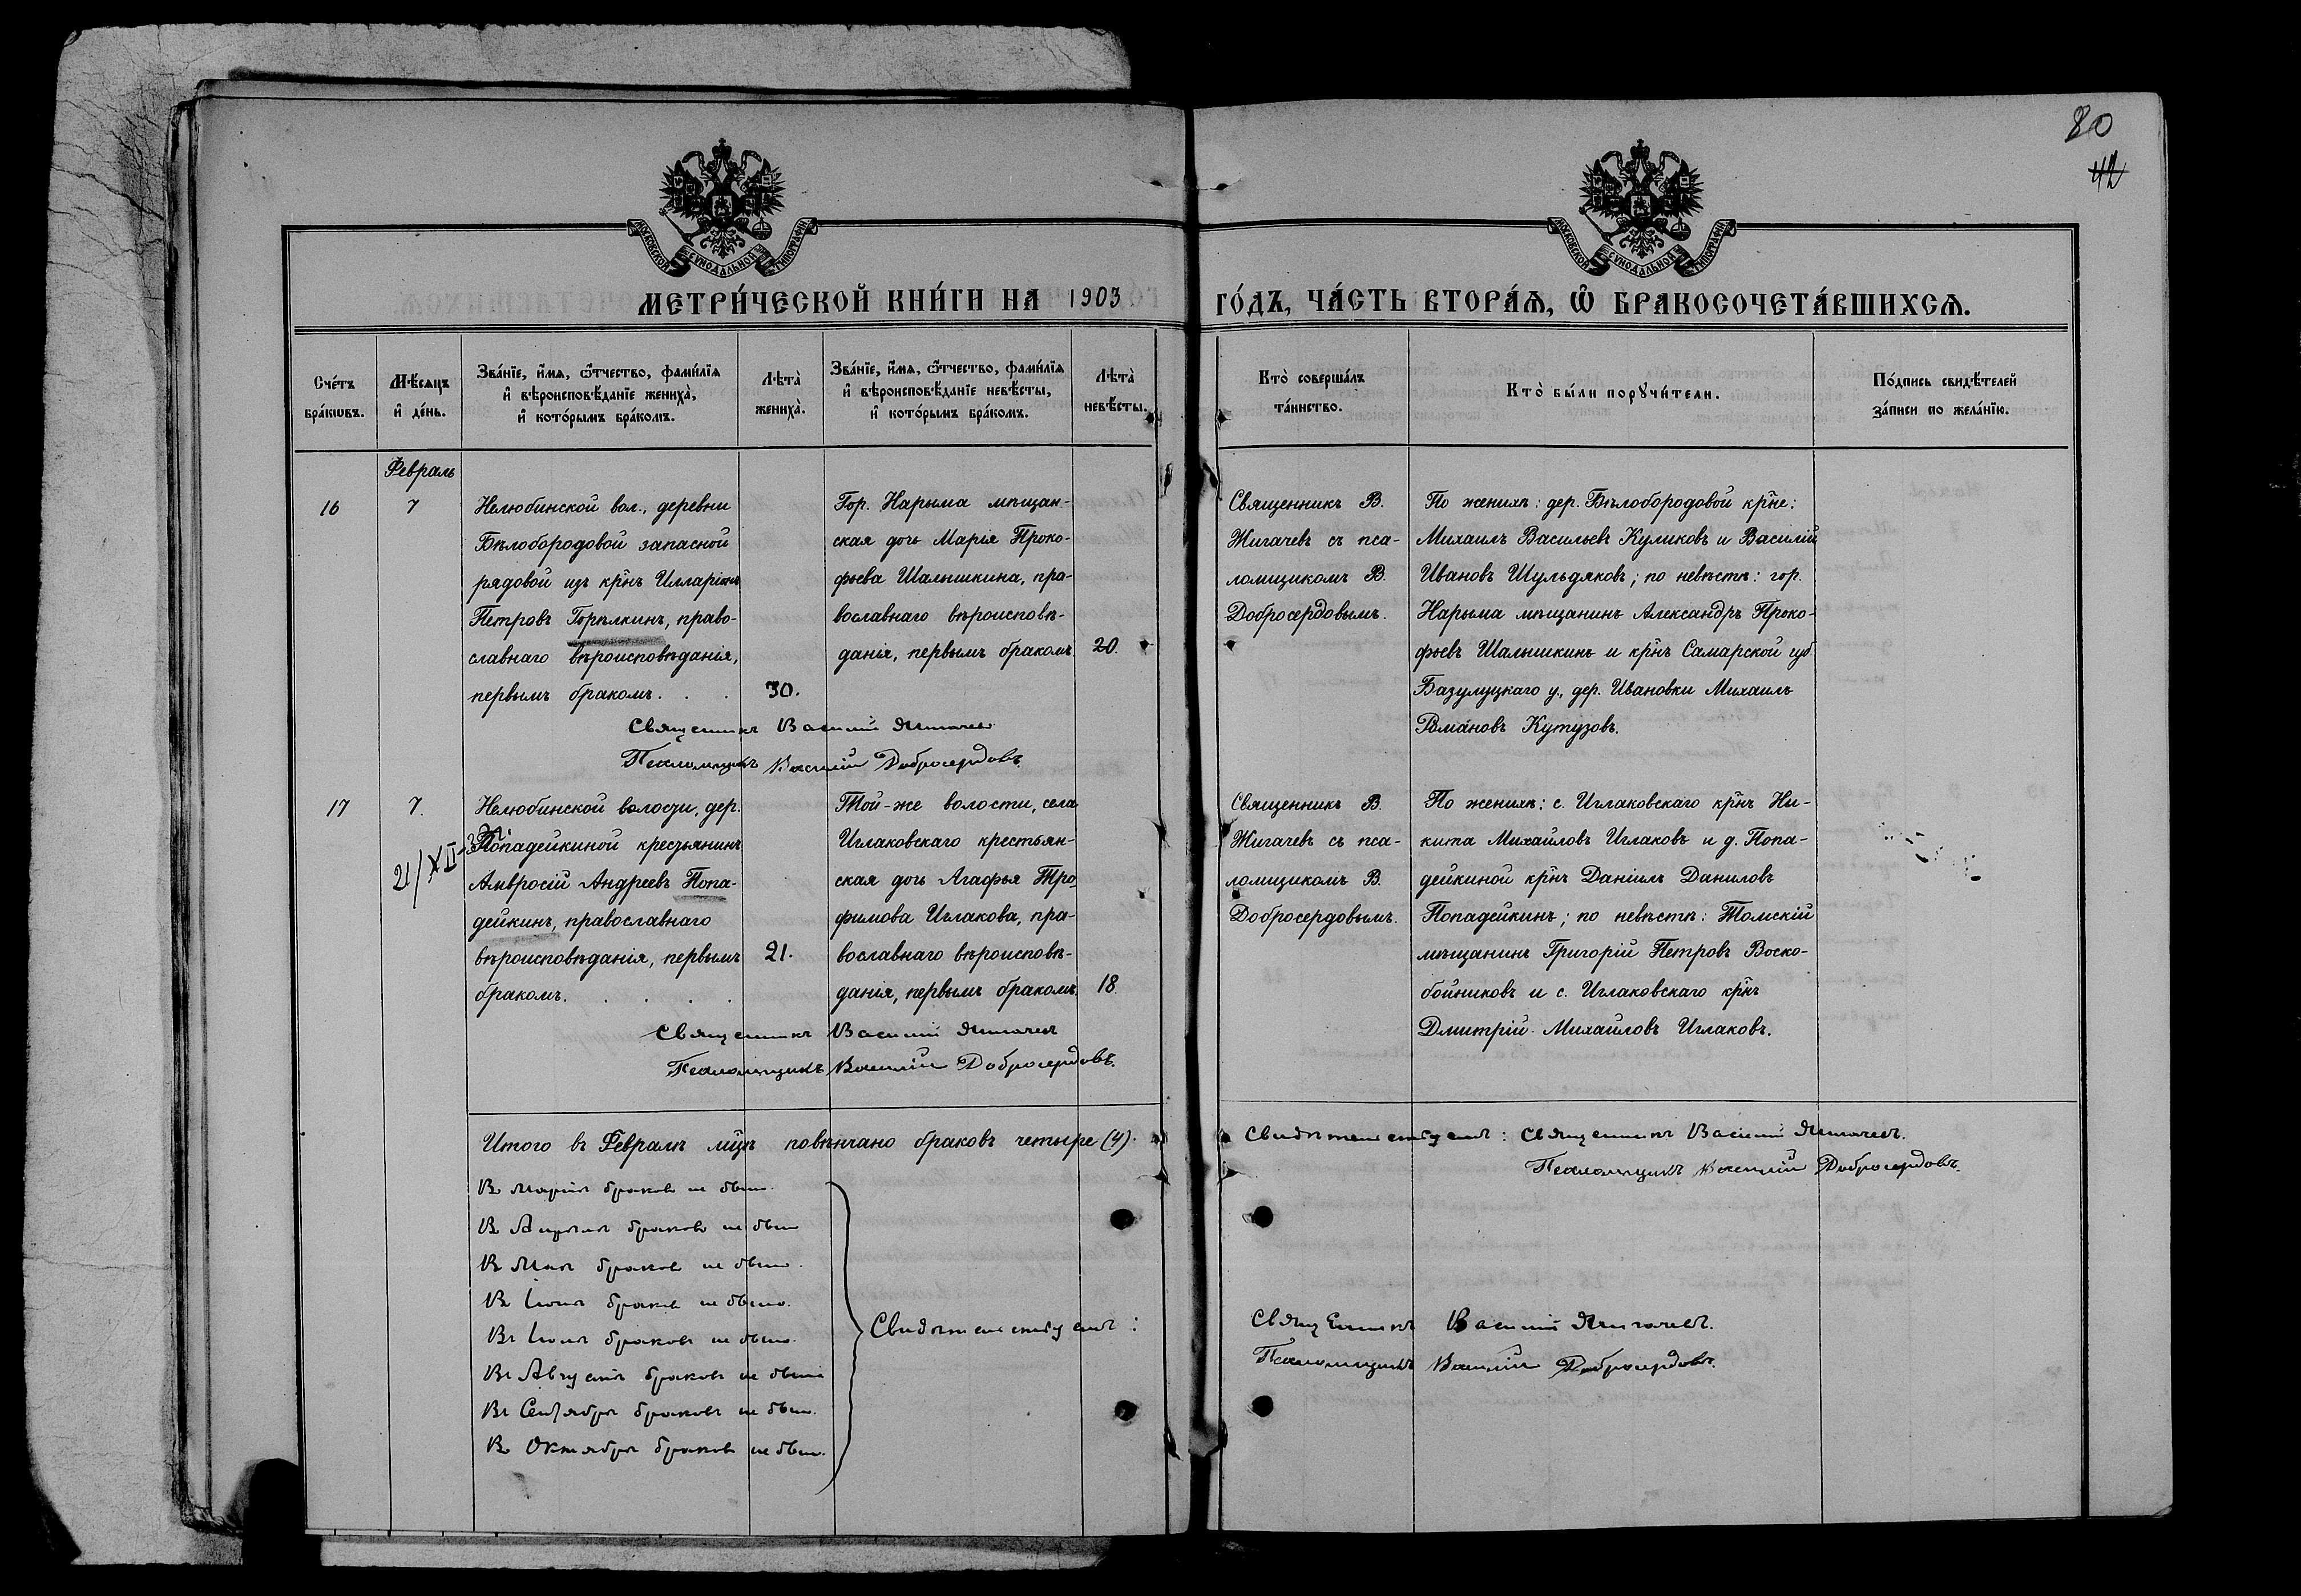 80
42
МОСКОВСКОЙ СУНОДАЛЬНОЙ ТИПОГРАФІИ
МОСКОВСКОЙ СУНОДАЛЬНОЙ ТИПОГРАФІИ
МЕТРИ́ЧЕСКОЙ КНИ́ГИ НА 1903 ГО́ДЪ, ЧА́СТЬ ВТОРА́Ѧ, Ѡ҆ БРАКОСОЧЕТА́ВШИХСѦ.
Сче́тъ бра́кѡвъ.
Мѣ́сѧцъ и҆ де́нь.
Зва́нїе, и҆́мѧ, ѻ҆́тчество, фами́лїѧ
и҆ вѣроисповѣ́данїе жениха̀,
и҆ кото́рымъ бра́комъ.
Лѣта̀ жениха̀.
Зва́нїе, и҆́мѧ, ѻ҆́тчество, фами́лїѧ
и҆ вѣроисповѣ́данїе невѣ́сты,
и҆ кото́рымъ бра́комъ.
Лѣта̀ невѣ́сты.
Кто̀ соверша́лъ
та́инство.
Кто̀ бы́ли порꙋчи́тели.
По́дпись свидѣ́телей
за́писи по жела́нїю.
Февраль
16
7
Нелюбинской вол., деревни
Бѣлобородовой запасной
рядовой изъ кр̃нъ Илларіонъ
Петровъ Горѣлкинъ, право-
славнаго вѣроисповѣданія,
первымъ бракомъ. . .
30.
Гор. Нарыма мѣщан-
ская дочь Марія Проко-
фьева Шалышкина, пра-
вославнаго вѣроисповѣ-
данія, первымъ бракомъ.
20.
Священникъ В.
Жигачевъ съ пса-
ломщикомъ В.
Добросердовымъ.
По женихѣ: дер. Бѣлобородовой кр̃не:
Михаилъ Васильевъ Куликовъ и Василій
Ивановъ Шульдяковъ; по невѣстѣ: гор.
Нарыма мѣщанинъ Александръ Проко-
фьевъ Шалышкинъ и кр̃нъ Самарской губ
Базулуцкаго у., дер. Ивановки Михаилъ
Романовъ Кутузовъ.
Священникъ Василій Жигачев
Псаломщикъ Василій Добросердовъ.
17
7.
21/XII-
Нелюбинской волости, дер.
Попадейкиной крестьянинъ
Амвросій Андреевъ Попа-
дейкинъ, православнаго
вѣроисповѣданія, первымъ
бракомъ. . . . .
21.
Той-же волости, села
Иглаковскаго крестьян-
ская дочь Агафья Тро-
фимова Иглакова, пра-
вославнаго вѣроисповѣ-
данія, первымъ бракомъ.
18.
Священникъ В.
Жигачевъ съ пса-
ломщикомъ В.
Добросердовымъ.
По женихѣ: с. Иглаковскаго кр̃нъ Ни-
кита Михайловъ Иглаковъ и д. Попа-
дейкиной кр̃нъ Даніилъ Даниловъ
Попадейкинъ; по невѣстѣ: Томскій
мѣщанинъ Григорій Петровъ Воско-
бойниковъ и с. Иглаковскаго кр̃нъ
Дмитрій Михайловъ Иглаковъ.
Священникъ Василій Жигачев
Псаломщикъ Василій Добросердовъ.
Итого въ Февралѣ мц̃ѣ повѣнчано браковъ четыре (4).
Свидѣтельствуемъ: Священникъ Василій Жигачевъ.
Псаломщикъ Василій Добросердовъ.
Въ Мартѣ браковъ не было.
Въ Апрѣлѣ браковъ не было
Въ Маѣ браковъ не было.
Въ Іюнѣ браковъ не было.
Въ Іюлѣ браковъ не было.
Въ Августѣ браковъ не было
Въ Сентябрѣ браковъ не было.
Въ Октябрѣ браковъ не было.
Свидѣтельствуемъ:
Священникъ Василій Жигачевъ.
Псаломщикъ Василій Добросердовъ.